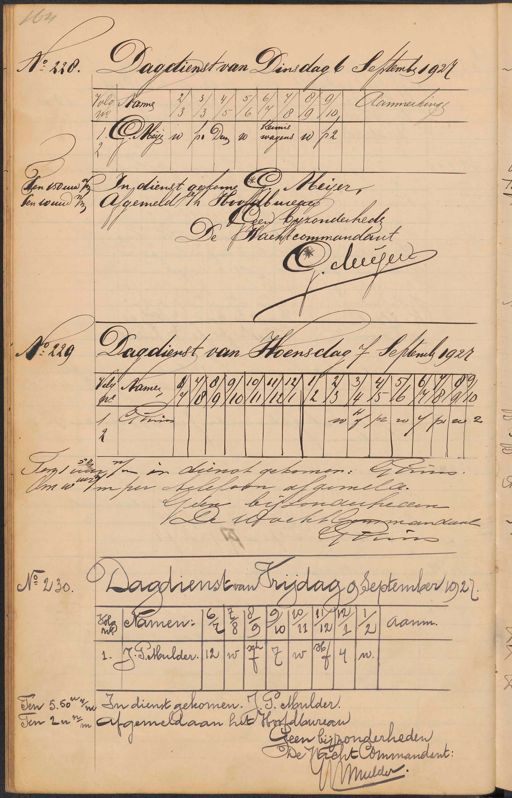 164
No. 228. Dagdienst van Dinsdag 6 September 1927
Volg Name 2/3 3/4 5/6 6/7 7/8 8/9 9/10 Aanmerking
nr.
1 G. Meijer w w w p 2
2
In dienst gekome G. Meijer.
Afgemeld a/h Hoofdbureau
Geen bijzonderhede
De Wachtcommandant
G. Meijer
No. 229 Dagdienst van Woensdag 7 September 1927
Volg Name 6/7 7/8 8/9 9/10 10/11 11/12 12/1 1/2 2/3 3/4 4/5 5/6 6/7 7/8 8/9 9/10
1 w w w 2
2
in dienst gekomen:
per telefoon afgemeld.
Geen bijzonderheden
De Wacht Commandant
No. 230. Dagdienst van Vrijdag 9 September 1927.
Volg Namen: 6/7 7/8 8/9 9/10 10/11 11/12 12/1 1/2 aanm.
no.
1. J. P. Mulder. 12 w 7 w 4 w.
Ten 5.50 u v/m In dienst gekomen. J. P. Mulder.
Ten 2 u n/m Afgemeld aan het Hoofdbureau
Geen bijzonderheden
De Wacht Commandant:
Mulder.